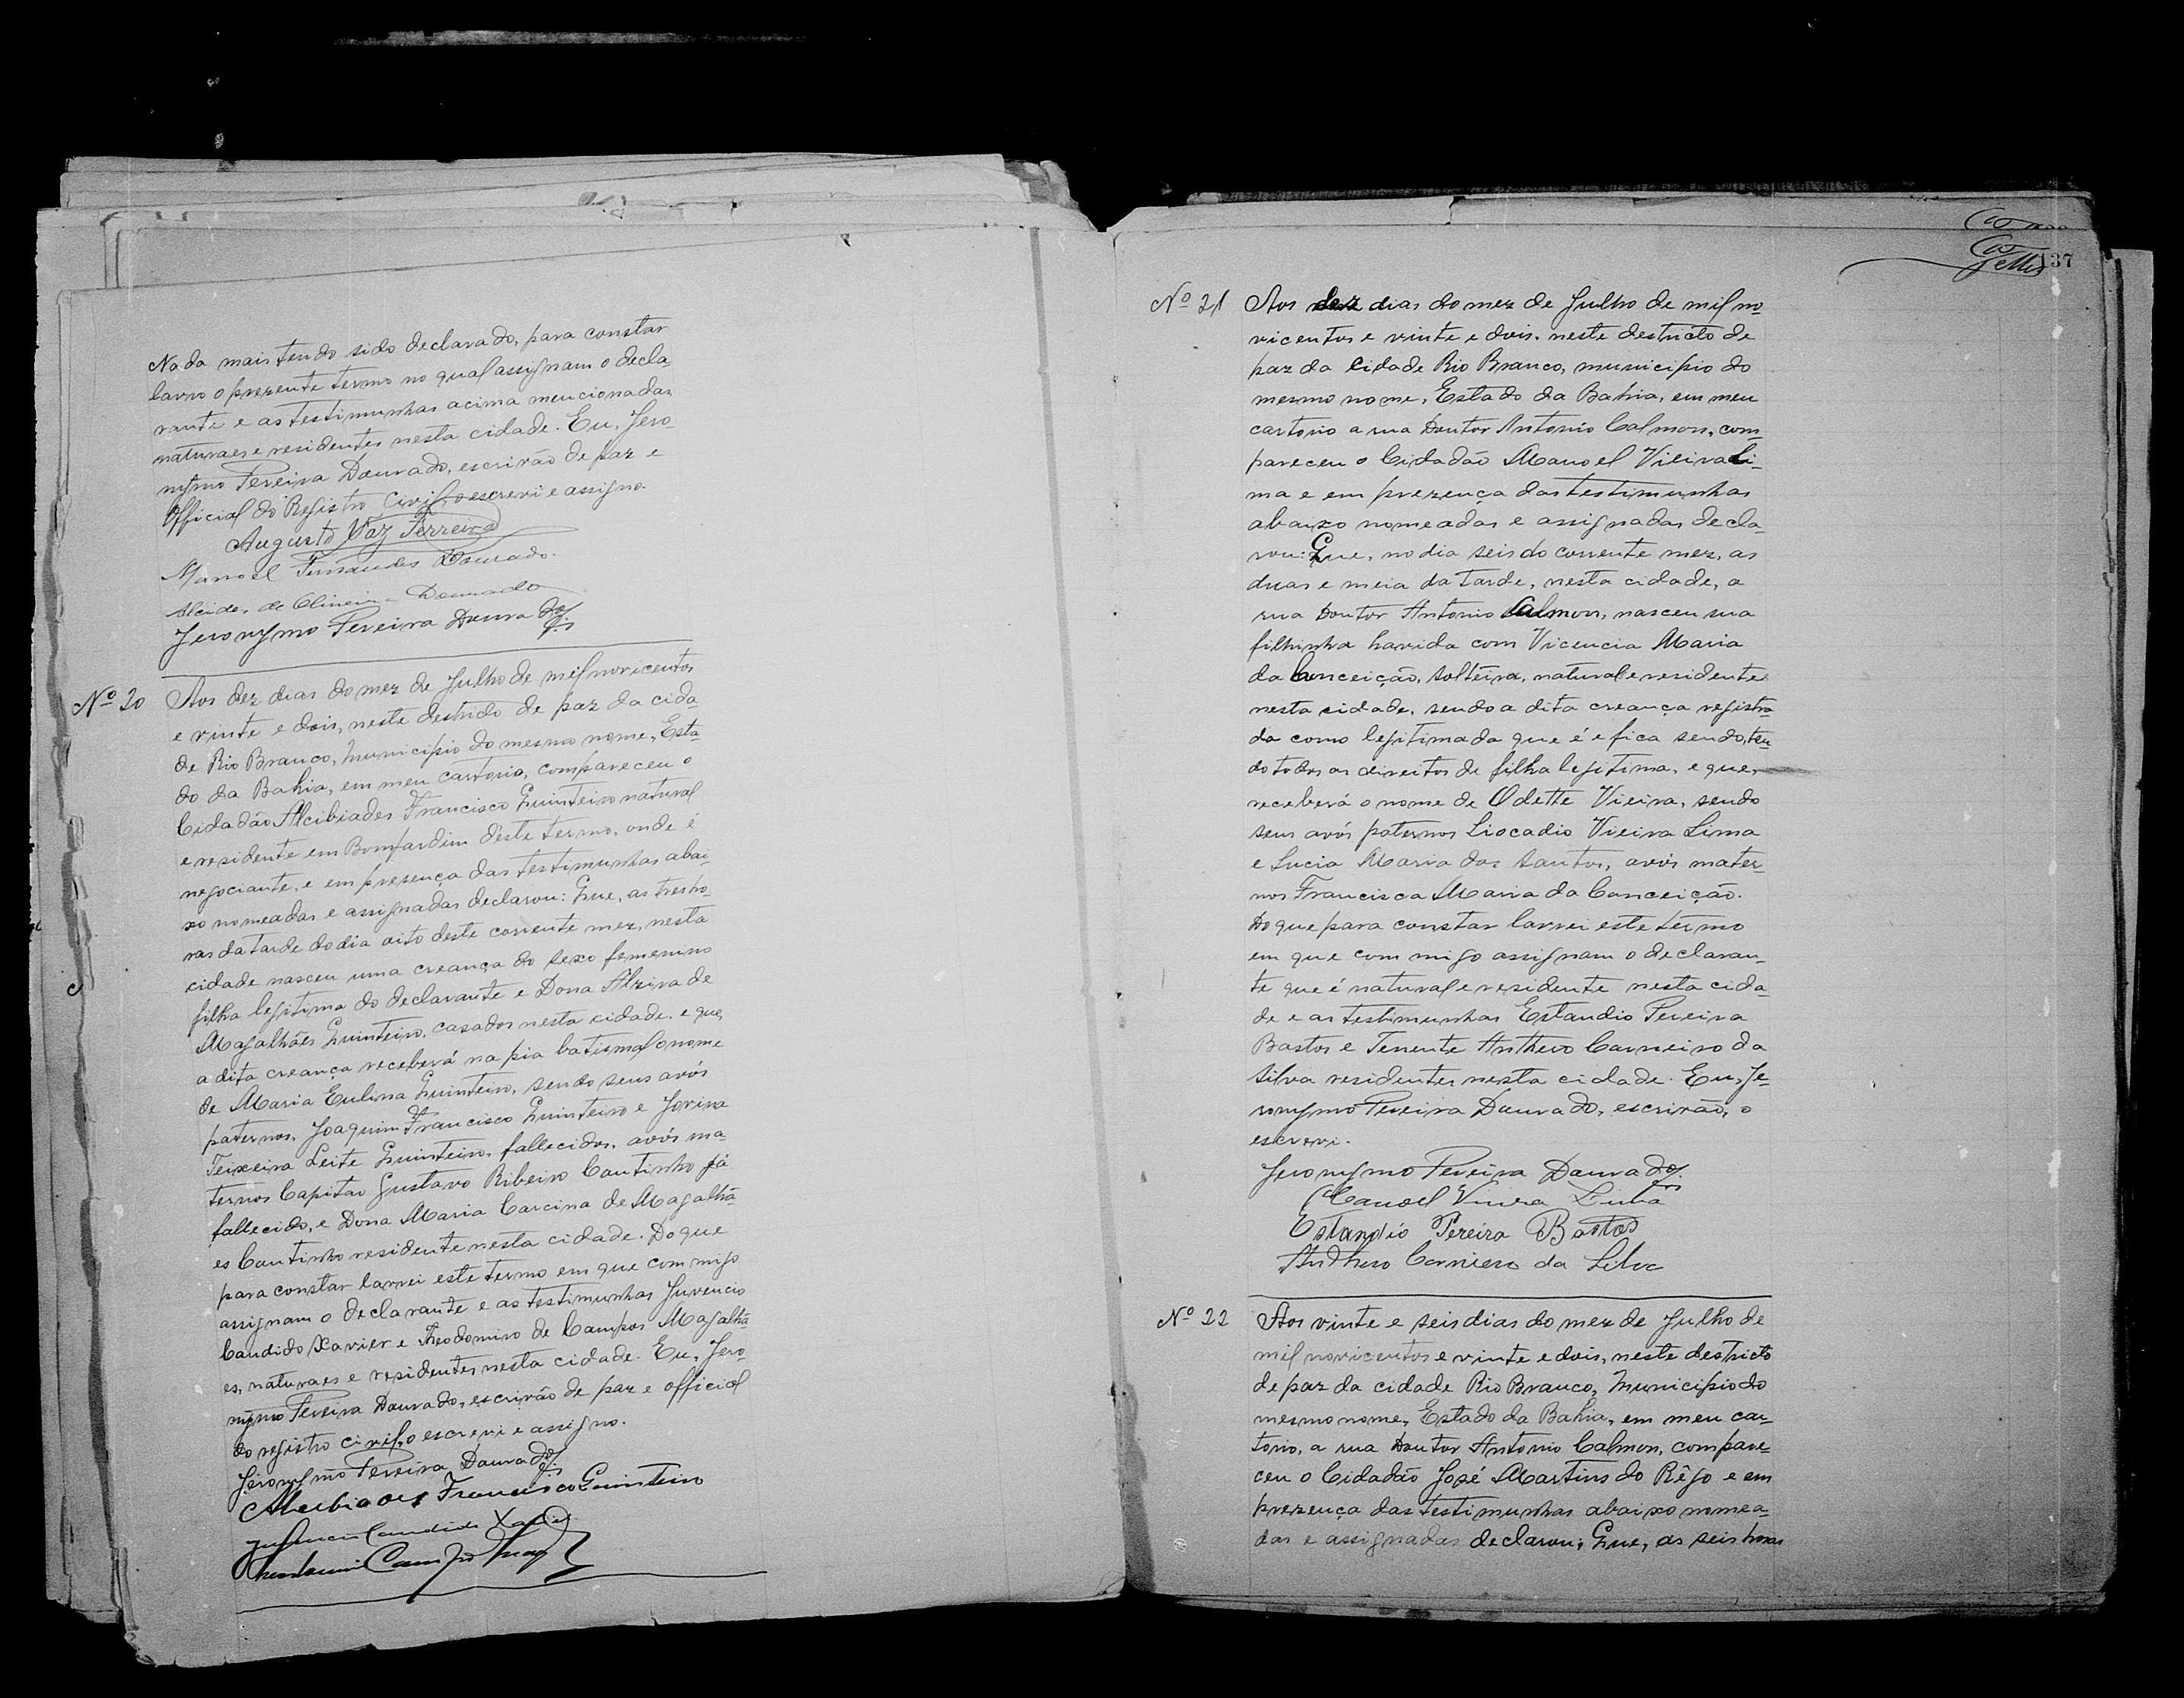 Nada mais tendo sido declarado, para constar
lavro o prezente termo no qual assignam o decla-
rante e as testimunhas acima mencionadas
naturaes e residentes nesta cidade. Eu, Jero-
nymo Pereira Dourado, escrivão de paz e
Official do Registro Civil, o escrevi e assigno.
Augusto Vaz Ferreira
Manoel Fernandes Dourado.
Alcides de Oliveira Dourado
Jeronymo Pereira Dourado
Nº 20 Aos dez dias do mez de Julho de mil novicentos
e vinte e dois, neste destricto de paz da cida-
de Rio Branco, Municipio do mesmo nome, Esta-
do da Bahia, em meu cartorio, compareceu o
Cidadão Alcibiades Francisco Quinteiro natural
e residente em Bomjardim dêste termo, onde é
negociante, e em presença das testimunhas abai-
xo nomeadas e assignadas declarou: Que, as tres ho-
ras da tarde do dia oito deste corrente mez, nesta
cidade nasceu uma creança do sexo femenino
filha legitima do declarante e Dona Alzira de
Magalhães Quinteiro, casados nesta cidade, e que,
a dita creança receberá na pia batismal o nome
de Maria Eulina Quinteiro, sendo seus avós
paternos, Joaquim Francisco Quinteiro e Jovina
Teixeira Leite Quinteiro, fallecidos, avós ma-
ternos Capitão Gustavo Ribeiro Coutinho já
fallecido, e Dona Maria Carcina de Magalhã-
es Coutinho residente nesta cidade. Do que
para constar lavrei este termo em que com migo
assignam o declarante e as testimunhas Juvencio
Candido Xavier e Theodomiro de Campos Magalhã-
es, naturaes e residentes nesta cidade. Eu, Jero-
nymo Pereira Dourado, escrivão de paz e official
do registro civil, o escrevi e assigno.
Jeronymo Pereira Dourado
Alcibiades Francisco Quinteiro
Juvencio Candido Xavier
37
Nº 21 Aos dez dias do mez de Julho de mil no-
vicentos e vinte e dois, neste destricto de
paz da Cidade Rio Branco, municipio do
mesmo nome, Estado da Bahia, em meu
cartorio a rua Doutor Antonio Calmon, com-
pareceu o Cidadão Manoel Vieira Li-
ma e em prezença das testimunhas
abaixo nomeadas e assignadas decla-
rou: Que, no dia seis do corrente mez, as
duas e meia da tarde, nesta cidade, a
rua Doutor Antonio Calmon, nasceu sua
filhinha havida com Vicencia Maria
da Conceição, solteira, natural e residente
nesta cidade, sendo a dita creança registra-
da como legitimada que é e fica sendo, ten-
do todos os direitos de filha legitima, e que,
receberá o nome de Odette Vieira, sendo
seus avós paternos Liocadio Vieira Lima
e Lucia Maria dos Santos, avós mater-
nos Francisca Maria da Conceição.
Do que para constar lavrei este termo
em que com migo assignam o declaran-
te que é natural e residente nesta cida-
de e as testimunhas Estandio Pereira
Bastos e Tenente Anthero Carneiro da
Silva residentes nesta cidade. Eu, Je-
ronymo Pereira Dourado, escrivão, o
escrevi.
Jeronymo Pereira Dourado
Manoel Vieira Lima
Estandio Pereira Bastos
Anthero Carniero da Silva
Nº 22 Aos vinte e seis dias do mez de Julho de
mil novicentos e vinte e dois, neste destricto
de paz da cidade Rio Branco, Municipio do
mesmo nome, Estado da Bahia, em meu car-
torio, a rua Doutor Antonio Calmon, compare-
ceu o Cidadão José Martins do Rêgo e em
prezença das testimunhas abaixo nomea-
das e assignadas declarou: Que, as seis horas